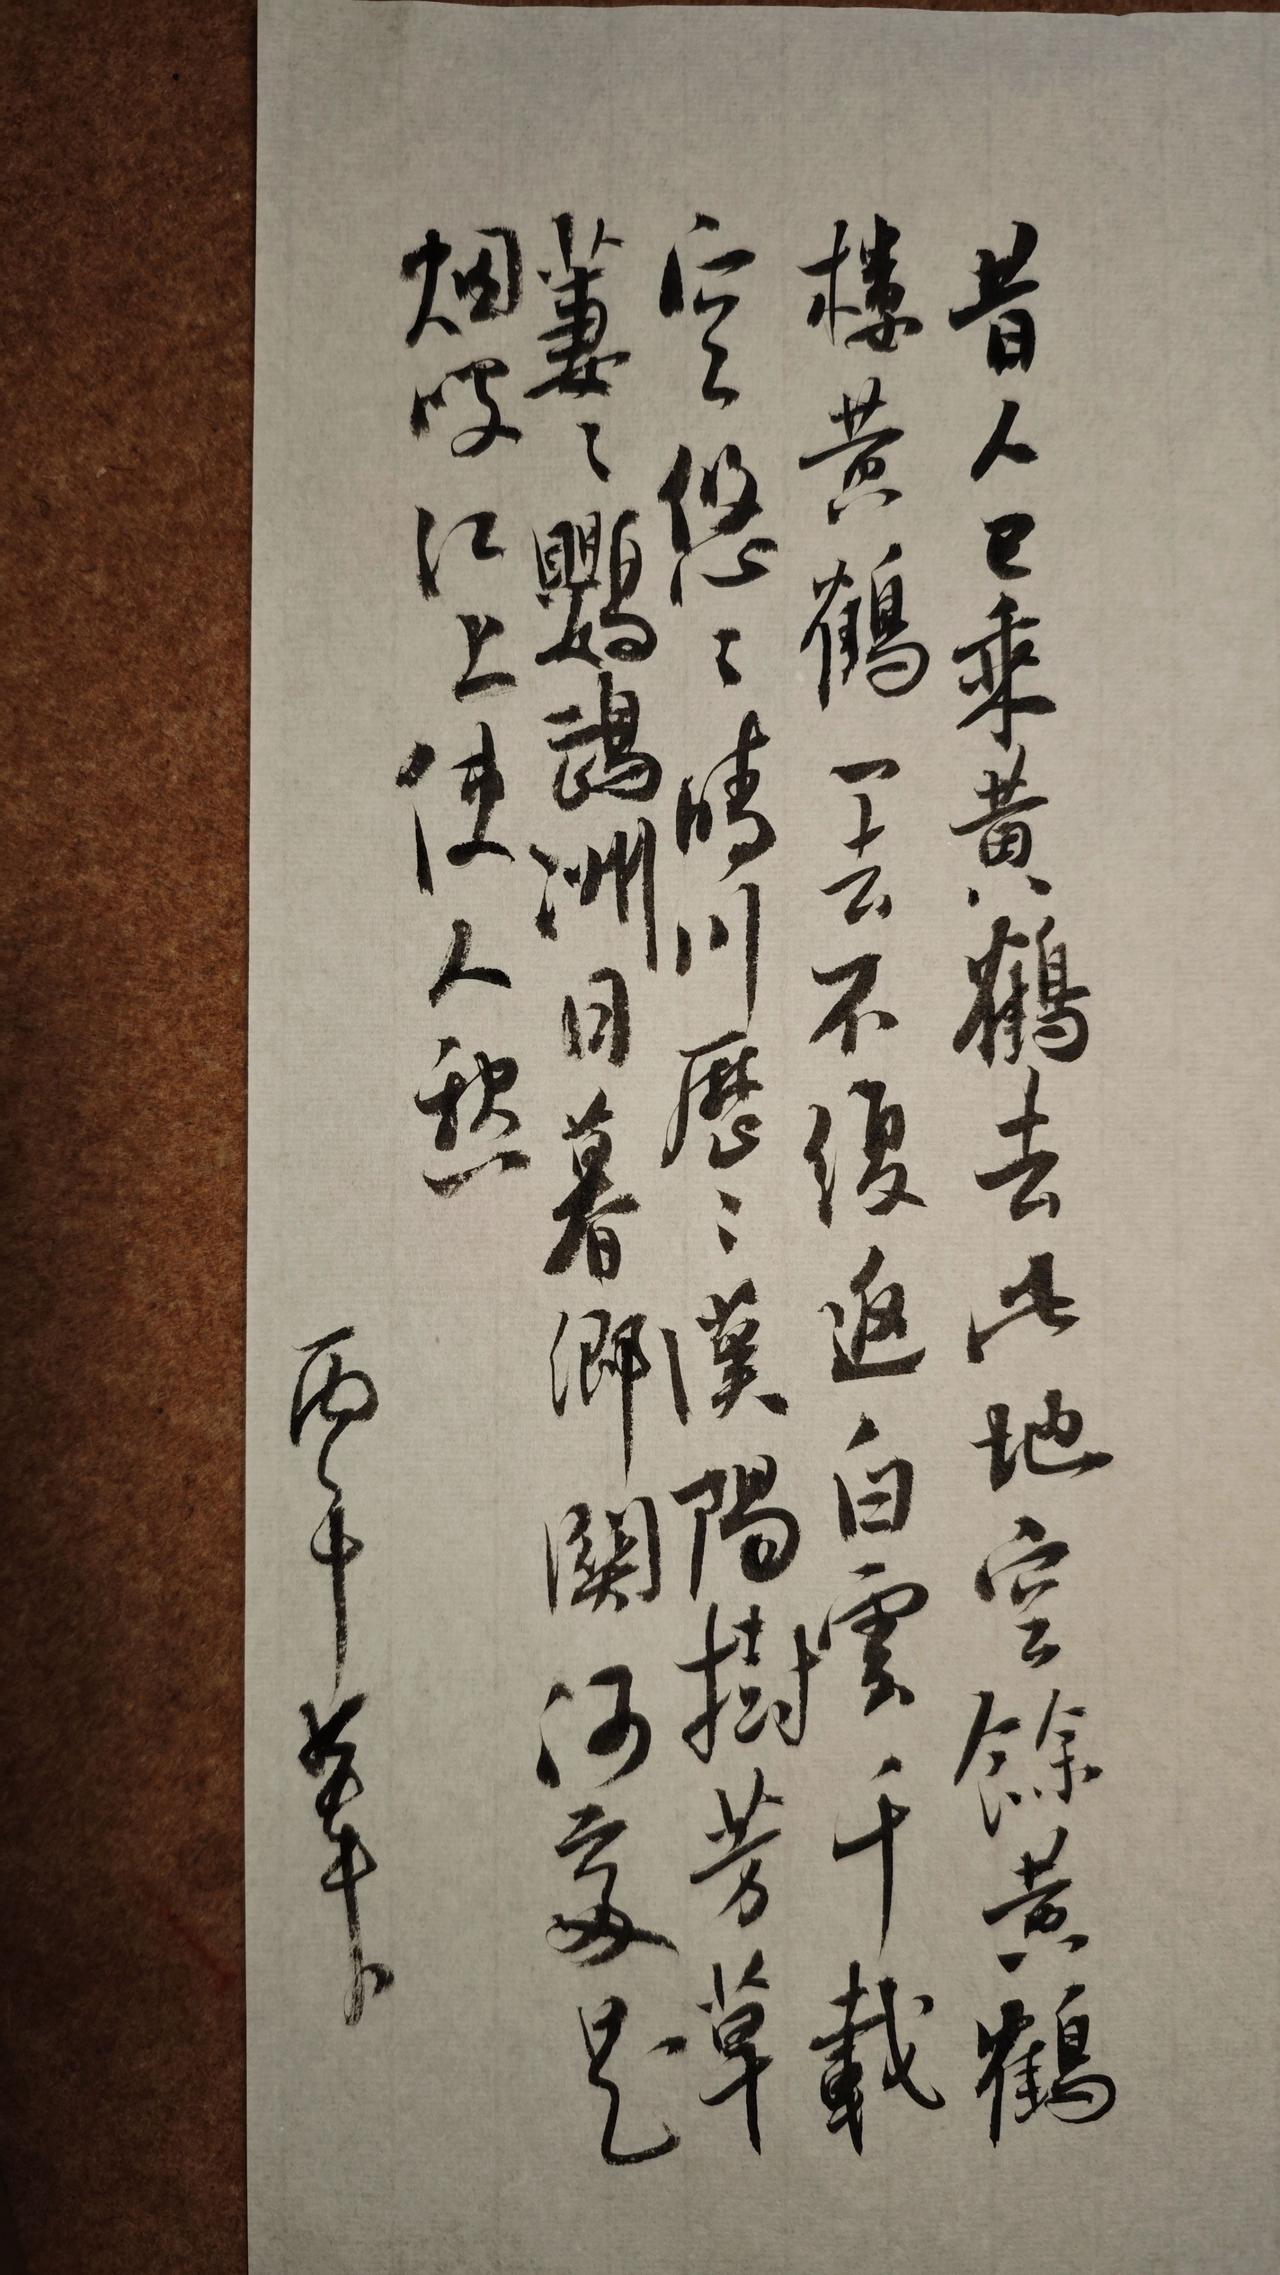 昔人已乘黄鶴去此地空餘黄鶴
樓黄鶴一去不復返白雲千載
空悠〻晴川歷〻漢陽樹芳草
萋〻鸚鵡洲日暮鄉關何處是
烟波江上使人愁
丙午